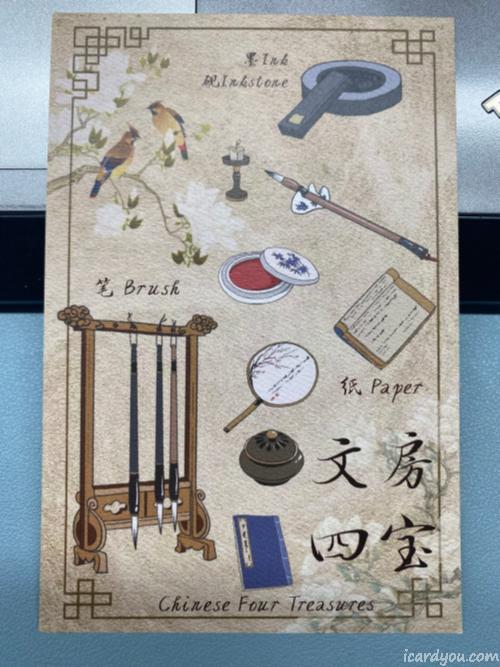 墨 Ink
砚 Inkstone
笔 Brush
纸 Paper
文房
四宝
Chinese Four Treasures
icardyou.com